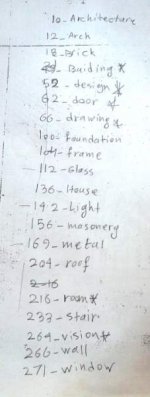 10-Architecture
12-Arch
18-Brick
Buiding *
52-design *
62-door *
66-drawing *
100-foundation
104-frame
112-Glass
136-House
142-Light
156-masonerg
169-metal
204-roof
216-room*
233-stair
264-vision*
266-wall
271-window